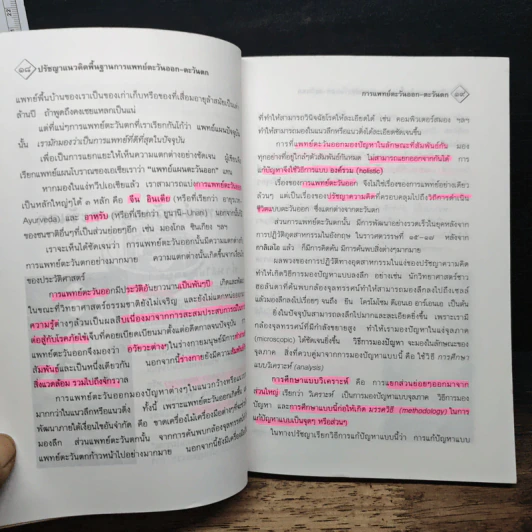 ๑๘ ปรัชญาแนวคิดพื้นฐานการแพทย์ตะวันออก-ตะวันตก
แพทย์พื้นบ้านของเราเป็นของเก่าเก็บหรือของที่เสื่อมอายุล้าสมัยเป็น
ล้านปี ถ้าพูดถึงคงเชยแหลกเป็นแน่
แต่ที่แน่ๆการแพทย์ตะวันตกที่เราเรียกกันโก้ว่า แพทย์แผนปัจจุบัน
นั้น เรามักมองว่าเป็นการแพทย์ที่ดีที่สุดในปัจจุบัน
เพื่อเป็นการแยกแยะให้เห็นความแตกต่างอย่างชัดเจน
เรียกแพทย์แผนโบราณของเอเชียเราว่า "แพทย์แผนตะวันออก" แทน
หากมองในแง่ทวีปเอเชียแล้ว เราสามารถแบ่งการแพทย์ตะวันออก
เป็นหลักใหญ่ๆได้ ๓ หลัก คือ จีน อินเดีย (หรือที่เรียกว่า อายุรเวท
Ayurveda) และ อาหรับ (หรือที่เรียกว่า ยูนานิ-Unani) นอกจากนั้นเป็น
ของชนชาติอื่นๆที่เป็นส่วนย่อยๆอีก เช่น มองโกล ซินเกียง ฯลฯ
เราจะเห็นได้ชัดเจนว่า การแพทย์ตะวันออกนั้นมีความแตกต่าง
การแพทย์ตะวันตกอย่างมากมาย ความแตกต่างนั้นเกิดขึ้นจากเงื่อนไข
ของประวัติศาสตร์
การแพทย์ตะวันออกมีประวัติอันยาวนานเป็นพันๆปี เกิดและพัฒนา
ในขณะที่วิทยาศาสตร์ธรรมชาติยังไม่เจริญ และยังไม่แตกแขนง
ความรู้ต่างๆล้วนเป็นผลสืบเนื่องมาจากการสะสมประสบการณ์ในการ
ต่อสู้กับโรคภัยไข้เจ็บที่คอยเบียดเบียนมาตั้งแต่อดีตกาลจวบปัจจุบัน
แพทย์ตะวันออกจึงมองว่า อวัยวะต่างๆในร่างกายมนุษย์มีการทำงาน
สัมพันธ์และเป็นหนึ่งเดียวกัน นอกจากนี้ร่างกายยังมีความสัมพันธ์กับ
สิ่งแวดล้อม รวมไปถึงจักรวาล
การแพทย์ตะวันออกมองปัญหาต่างๆในแนวกว้างหรือแนวราบ
มากกว่าในแนวลึกหรือแนวดิ่ง ทั้งนี้ เพราะการแพทย์ตะวันออกเกิดขึ้น
พัฒนาภายใต้เงื่อนไขอันจำกัด คือ ขาดเครื่องไม้เครื่องมือต่างๆที่จะช่วย
มองลึก ส่วนแพทย์ตะวันตกนั้น จากการค้นพบกล้องจุลทรรศน์
แพทย์ตะวันตกก้าวหน้าไปอย่างมากมาย นอกจากนี้ยังมีเครื่องมือ
การแพทย์ตะวันออก-ตะวันตก ๑๙
ที่ทำให้สามารถวินิจฉัยโรคให้ละเอียดได้ เช่น คอมพิวเตอร์สมอง ฯลฯ
ทำให้สามารถมองในแนวลึกหรือแนวดิ่งได้ละเอียดชัดเจนขึ้น
การที่แพทย์ตะวันออกมองปัญหาในลักษณะที่สัมพันธ์กัน มอง
ทุกอย่างที่อยู่ใกล้ๆตัวสัมพันธ์กันหมด ไม่สามารถแยกออกจากกันได้ การ
แก้ปัญหาจึงใช้วิธีการแบบ องค์รวม (holistic)
เรื่องของการแพทย์ตะวันออก จึงไม่ใช่เรื่องของการแพทย์อย่างเดียว
ล้วนๆ แต่เป็นเรื่องของปรัชญาความคิดที่ครอบคลุมไปถึงวิถีการดำเนิน
ชีวิตแบบตะวันออก ซึ่งแตกต่างจากตะวันตก
ส่วนการแพทย์ตะวันตกนั้น มีการพัฒนาอย่างรวดเร็วในยุคหลังจาก
การปฏิวัติอุตสาหกรรมในอังกฤษ ในราวศตวรรษที่ ๑๕-๑๗ หลังจาก
กาลิเลโอ แล้ว ก็มีการคิดค้น มีการค้นพบสิ่งต่างๆมากมาย
ผลพวงของการปฏิวัติทางอุตสาหกรรมในแง่ของปรัชญาความคิด
ทำให้เกิดวิธีการมองปัญหาแบบลงลึก อย่างเช่น นักวิทยาศาสตร์ชาว
ฮอลันดาที่ค้นพบกล้องจุลทรรศน์ทำให้สามารถมองลึกลงไปถึงเซลล์
แล้วมองลึกลงไปเรื่อยๆ จนถึง ยีน โครโมโซม ดีเอนเอ อาร์เอนเอ เป็นต้น
ยิ่งในปัจจุบันสามารถลงลึกไปมากและละเอียดยิ่งขึ้น เพราะเรามี
กล้องจุลทรรศน์ที่มีกำลังขยายสูง ทำให้เรามองปัญหาในแง่จุลภาค
(microscopic) ได้ชัดเจนยิ่งขึ้น วิธีการมองปัญหา จะมองในลักษณะของ
จุลภาค สิ่งที่ควบคู่มาจากการมองปัญหาแบบนี้ คือ ใช้วิธี การศึกษา
แบบวิเคราะห์ (analysis)
การศึกษาแบบวิเคราะห์ คือ การแยกส่วนย่อยๆออกมาจาก
ส่วนใหญ่ เรียกว่า วิเคราะห์ เป็นการมองแบบจุลภาค วิธีการมอง
ปัญหา และการศึกษาแบบนี้ก่อให้เกิด มรรควิธี (methodology) ในการ
แก้ปัญหาแบบเป็นจุดๆ หรือส่วนๆ
ในทางปรัชญาเรียกวิธีการแก้ปัญหาแบบนี้ว่า การแก้ปัญหาแบบ